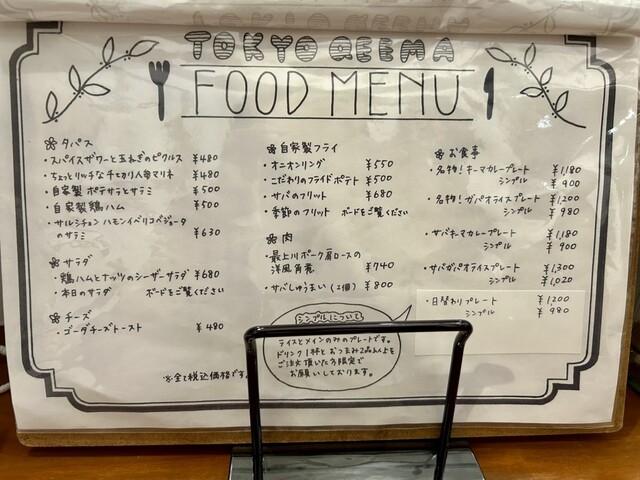 TOKYO QEEMA
FOOD MENU
タパス
・スパイスザワーと玉ねぎのピクルス ¥480
・ちょっとリッチな千切り人参マリネ ¥480
・自家製 ポテサラとサラミ ¥500
・自家製鶏ハム ¥500
・サルシチョン ハモンイベリコベジョータ
のサラミ ¥630
サラダ
・鶏ハムとナッツのシーザーサラダ ¥680
・本日のサラダ ボードをご覧ください
チーズ
・ゴーダチーズトースト ¥480
※全て税込価格です。
自家製フライ
・オニオンリング ¥550
・こだわりのフライドポテト ¥500
・サバのフリット ¥680
・季節のフリット ボードをご覧ください
肉
・最上川ポーク肩ロースの
洋風角煮 ¥740
・サバしゅうまい(2個) ¥800
シンプルについて
ライスとメインのみのプレートです。
ドリンク1杯とおつまみ2品以上を
ご注文頂いた方限定で
お願いしております。
お食事
・名物!キーマカレープレート ¥1,180
シンプル ¥900
・名物!ガパオライスプレート ¥1,200
シンプル ¥980
・サバキーマカレープレート ¥1,180
シンプル ¥900
・サバガパオライスプレート ¥1,300
シンプル ¥1,020
・日替わりプレート ¥1,200
シンプル ¥980